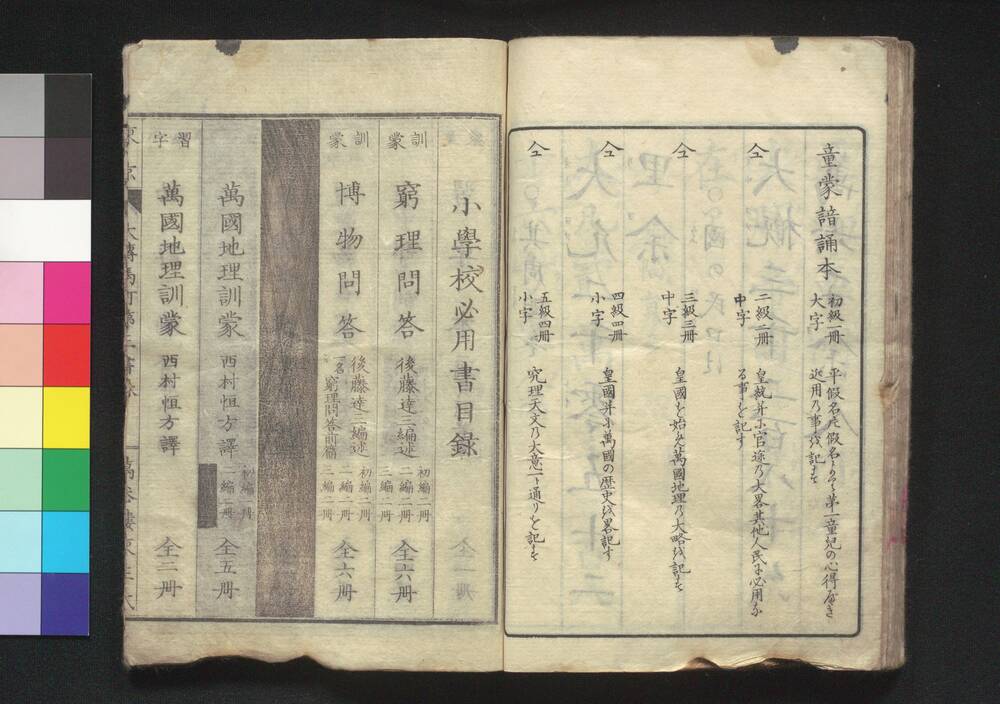 童蒙諳誦本
初級一冊
大字
平假名片假名
第一童児の心得べき
近用乃事を記す
仝
二級二冊
中字
皇統并小官途乃大畧其他人民に必用な
る事を記す
仝
三級三冊
中字
皇國を始め萬國地理乃大略を記す
仝
四級四冊
小字
皇國并小萬國の歴史を畧記す
仝
五級四冊
小字
究理天文乃大意一ト通りを記す
小學校必用書目録
訓蒙
窮理問答
後藤達三編述
初編二冊
二編二冊
三編二冊
全六冊
訓蒙
博物問答
後藤達三編述
一名窮理問答前篇
初編二冊
二編二冊
三編二冊
全六冊
萬國地理訓蒙
西村恒方譯
初編二冊
二編三冊
全五冊
習字
萬國地理訓蒙
西村恒方譯
全二冊